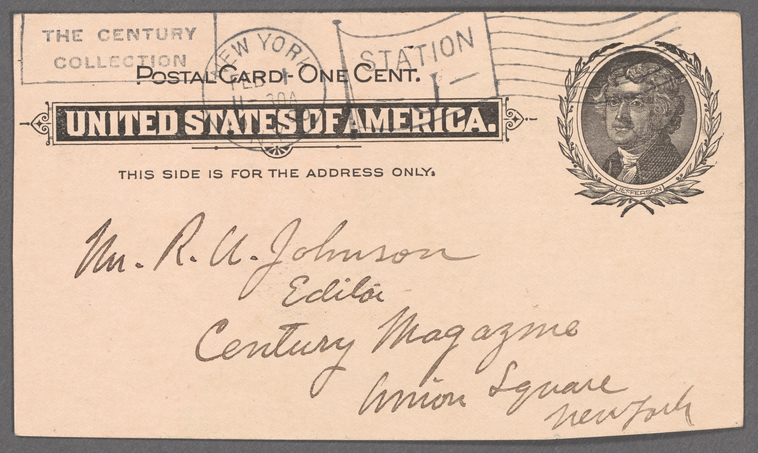 THE CENTURY
COLLECTION
NEW YORK
STATION
POSTAL CARD - ONE CENT.
FEB
UNITED STATES OF AMERICA.
THIS SIDE IS FOR THE ADDRESS ONLY.
JEFFERSON
Mr. R. U. Johnson
Editor
Century Magazine
Union Square
New York